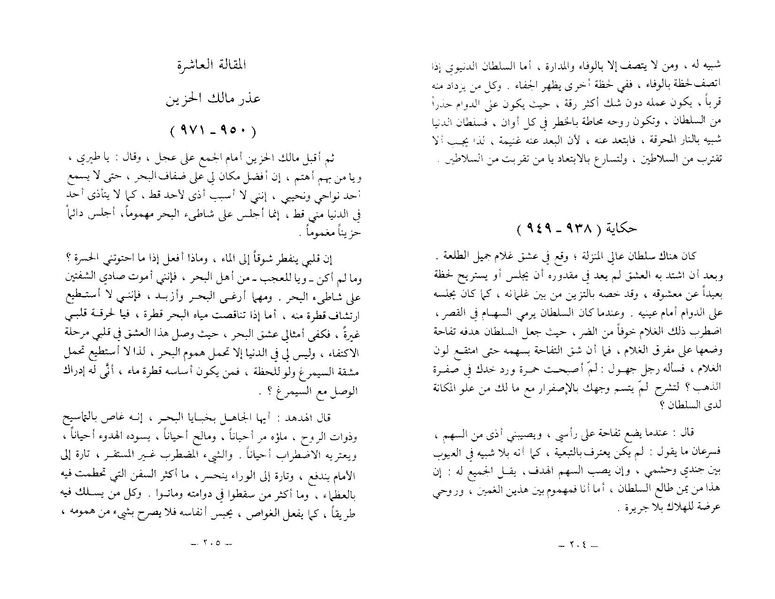 شبيه له ، ومن لا يتصف إلا بالوفاء والمدارة ، أما السلطان الدنيوي إذا
اتصف لحظة بالوفاء ، ففي لحظة أخرى يظهر الجفاء . وكل من يزداد منه
قرباً ، يكون عمله دون شك أكثر رقة ، حيث يكون على الدوام حذراً
من السلطان ، وتكون روحه محاطة بالخطر في كل أوان ، فسلطان الدنيا
شبيه بالنار المحرقة ، فابتعد عنه ، لأن البعد عنه غنيمة ، لذا يجب ألا
تقترب من السلاطين ، ولتسارع بالابتعاد يا من تقربت من السلاطين .
حكاية ( ٩٣٨ ــ ٩٤٩ )
كان هناك سلطان عالي المنزلة ؛ وقع في عشق غلام جميل الطلعة .
وبعد أن اشتد به العشق لم يعد في مقدوره أن يجلس أو يستريح لحظة
بعيداً عن معشوقه ، وقد خصه بالتزين من بين غلمانه ، كما كان يجلسه
على الدوام أمام عينيه . وعندما كان السلطان يرمي السهام في القصر ،
اضطرب ذلك الغلام خوفاً من الضر ، حيث جعل السلطان هدفه تفاحة
وضعها على مفرق الغلام ، فما أن شق التفاحة بسهمه حتى امتقع لون
الغلام ، فسأله رجل جهول : لمَ أصبحت حمرة ورد خدك في صفرة
الذهب ؟ لتشرح لمَ يتسم وجهك بالإصفرار مع ما لك من علو المكانة
لدى السلطان ؟
قال : عندما يضع تفاحة على رأسي ، ويصيبني أذى من السهم ،
فسرعان ما يقول : لم يكن يعترف بالتبعية ، كما أنه بلا شبيه في العيوب
بين جندي وحشمي ، وإن يصب السهم الهدف ، يقل الجميع له : إن
هذا من يمن طالع السلطان ، أما أنا فمهموم بين هذين الغمين ، وروحي
عرضة للهلاك بلا جريرة .
ــ ٢٠٤ ــ
المقالة العاشرة
عذر مالك الحزين
( ٩٥٠ ــ ٩٧١ )
ثم أقبل مالك الحزين أمام الجمع على عجل ، وقال : يا طيري ،
ويا من بهم أهتم ، إن أفضل مكان لي على ضفاف البحر ، حتى لا يسمع
أحد نواحي ونحيبي ، إنني لا أسبب أذى لأحد قط ، كما لا يتأذى أحد
في الدنيا مني قط ، إنما أجلس على شاطىء البحر مهموماً، أجلس دائماً
حزيناً مغموماً .
إن قلبي ينفطر شوقاً إلى الماء ، وماذا أفعل إذا ما احتوتني الحسرة ؟
وما لم أكن ــ ويا للعجب ــ من أهل البحر ، فإنني أموت صادي الشفتين
على شاطىء البحر . ومهما أرغى البحر وأزبد ، فإنني لا أستطيع
ارتشاف قطرة منه ، أما إذا تناقصت مياه البحر قطرة ، فيا لحرقة قلبي
غيرةً ، فكفى أمثالي عشق البحر ، حيث وصل هذا العشق في قلبي مرحلة
الاكتفاء ، وليس لي في الدنيا إلا تحمل هموم البحر ، لذا لا أستطيع تحمل
مشقة السيمرغ ولو للحظة ، فمن يكون أساسه قطرة ماء ، أنَّى له إدراك
الوصل مع السيمرغ ؟ .
قال الهدهد : أيها الجاهل بخبايا البحر ، إنه غاص بالتماسيح
وذوات الروح ، ماؤه مر أحياناً ، ومالح أحياناً ، يسوده الهدوء أحياناً ،
ويعتريه الاضطراب أحياناً . والشيء المضطرب غير المستقر ، تارة إلى
الأمام يندفع ، وتارة إلى الوراء ينحسر، ما أكثر السفن التي تحطمت فيه
بالعظماء ، وما أكثر من سقطوا في دوامته وماتوا . وكل من يسلك فيه
طريقاً ، كما يفعل الغواص ، يحبس أنفاسه فلا يصرح بشيء من همومه ،
ــ ٢٠٥ ــ